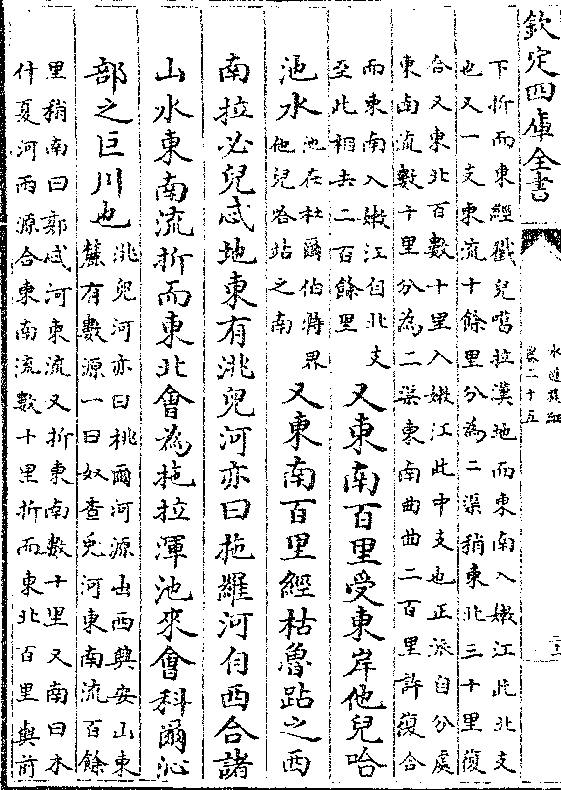 欽定四庫全書
水道提綱
卷二十五
下折而東經戳兒噶拉漢地而東南入嫩江此北支
也又一支東流十餘里分為二渠稍東北三十里復
合又東北百數十里入嫩江此中支也正派自分處
東南流數十里分為二渠東南曲曲二百里許復合
而東南入嫩江自北支
至此相去二百餘里
又東南百里受東岸他兒哈
池水
池在杜爾伯特界
他兒哈站之南
又東南百里經枯魯跕之西
南拉必兒忒地東有洮兒河亦曰拖羅河自西合諸
山水東南流折而東北會為拖拉渾池來會科爾沁
部之巨川也
洮兒河亦曰桃爾河源出西興安山東
麓有數源一曰奴查兒河東南流百餘
里稍南曰郭忒河東流又折東南數十里又南曰木
什夏河兩源合東南流數十里折而東北百里與前